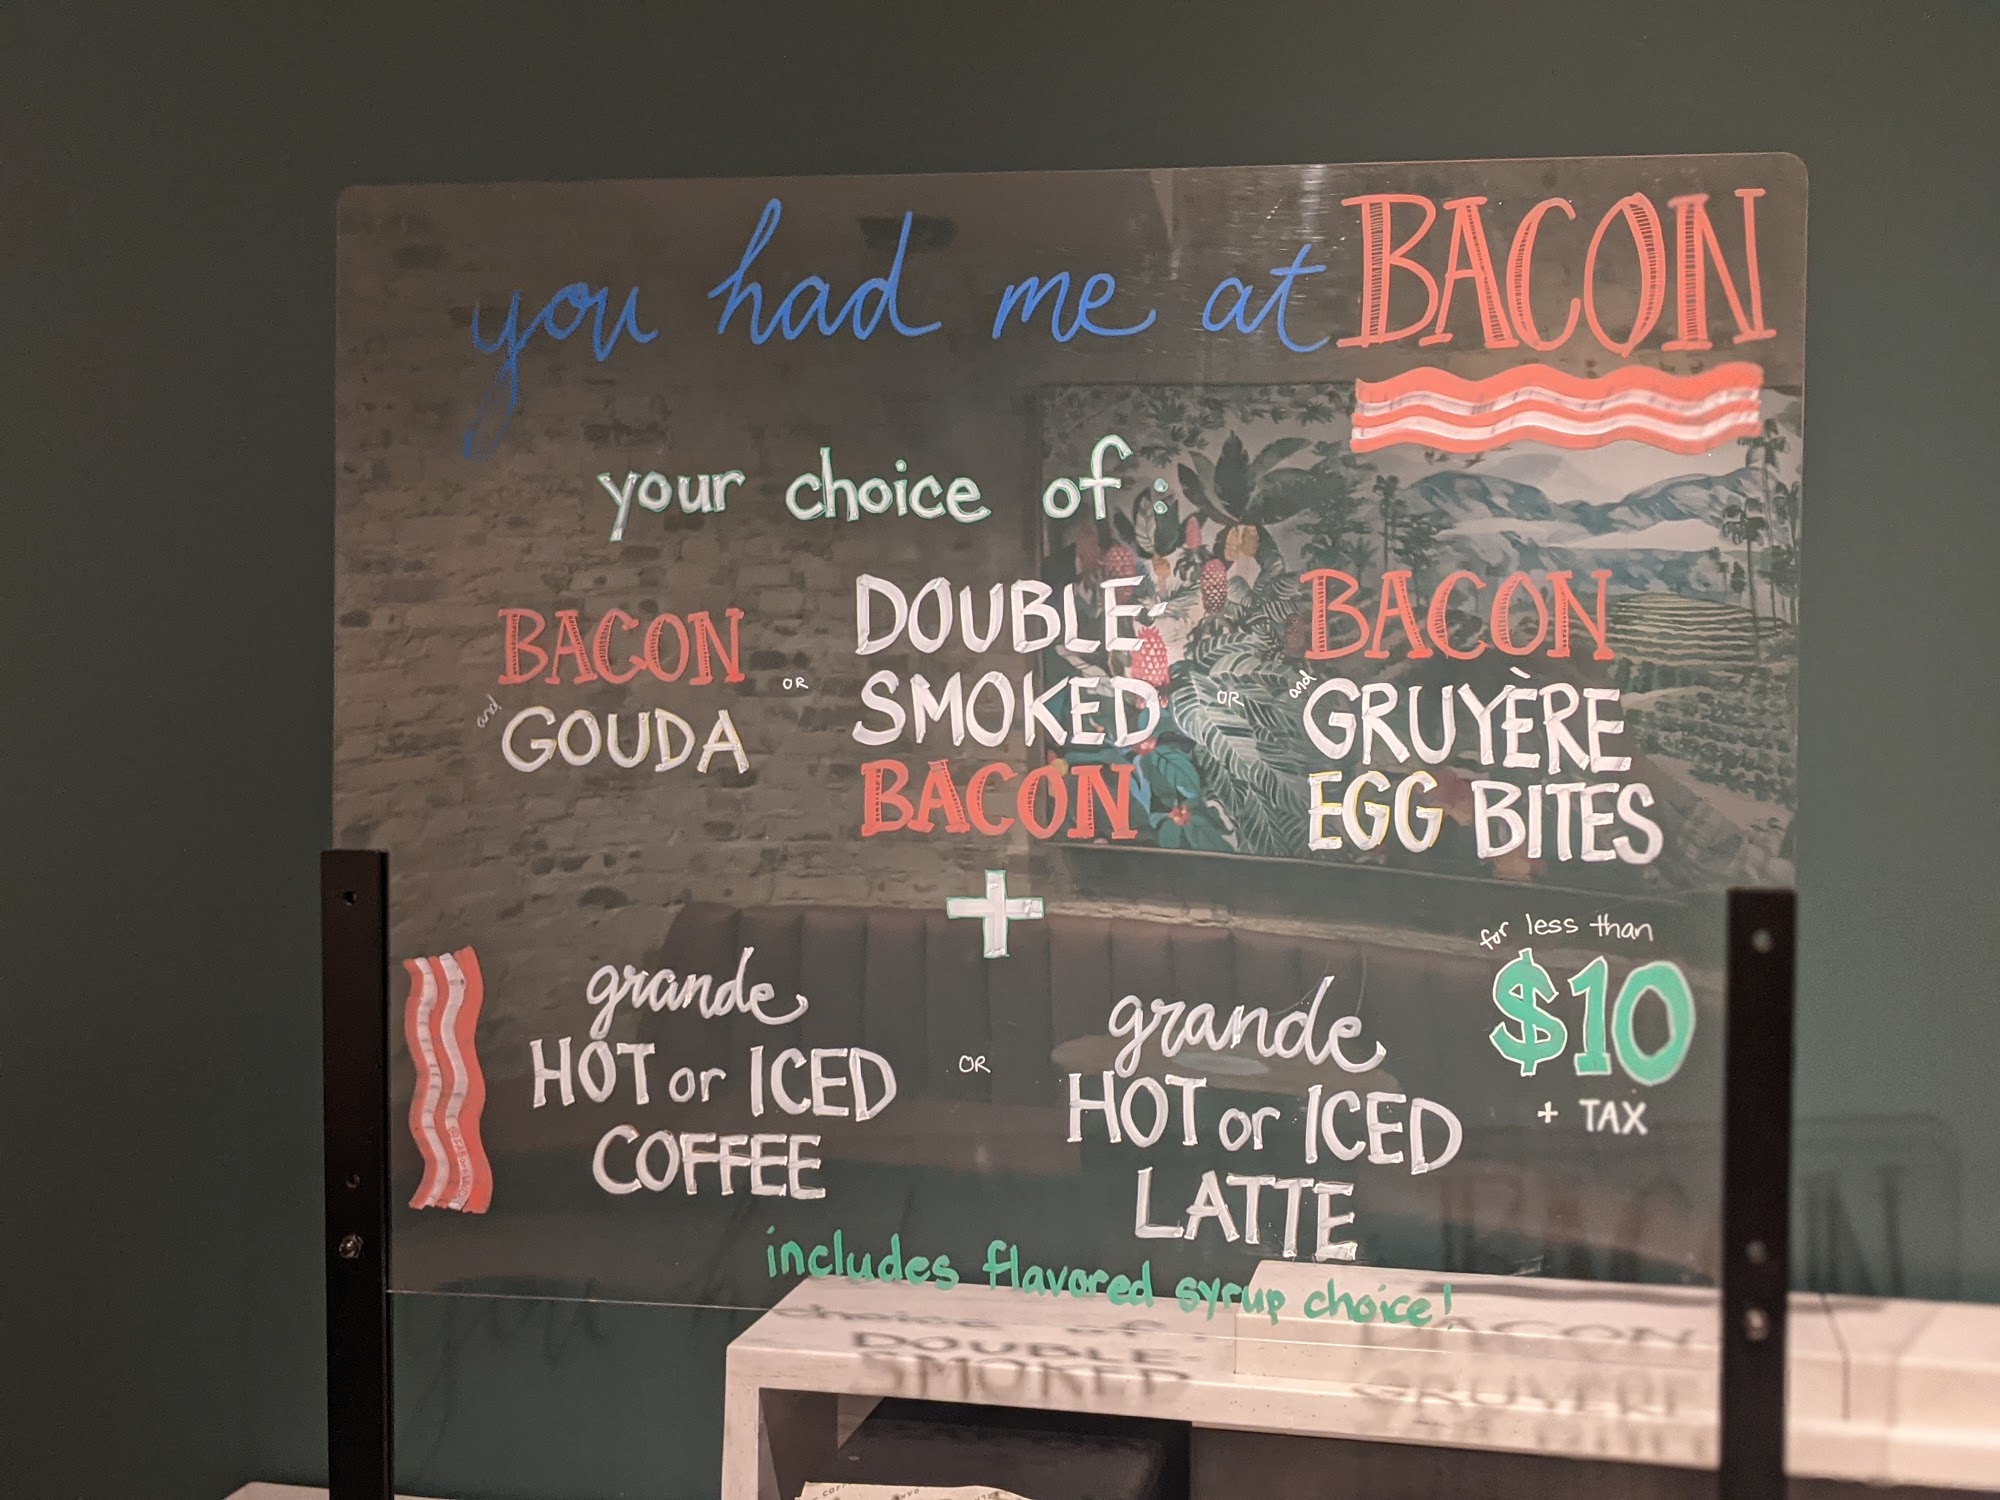 you had me at BACON
your choice of:
BACON
and GOUDA
OR
DOUBLE-
SMOKED
BACON
OR
BACON
and GRUYÈRE
EGG BITES
+
grande
HOT or ICED
COFFEE
OR
grande
HOT or ICED
LATTE
for less than
$10
+ TAX
includes flavored syrup choice!